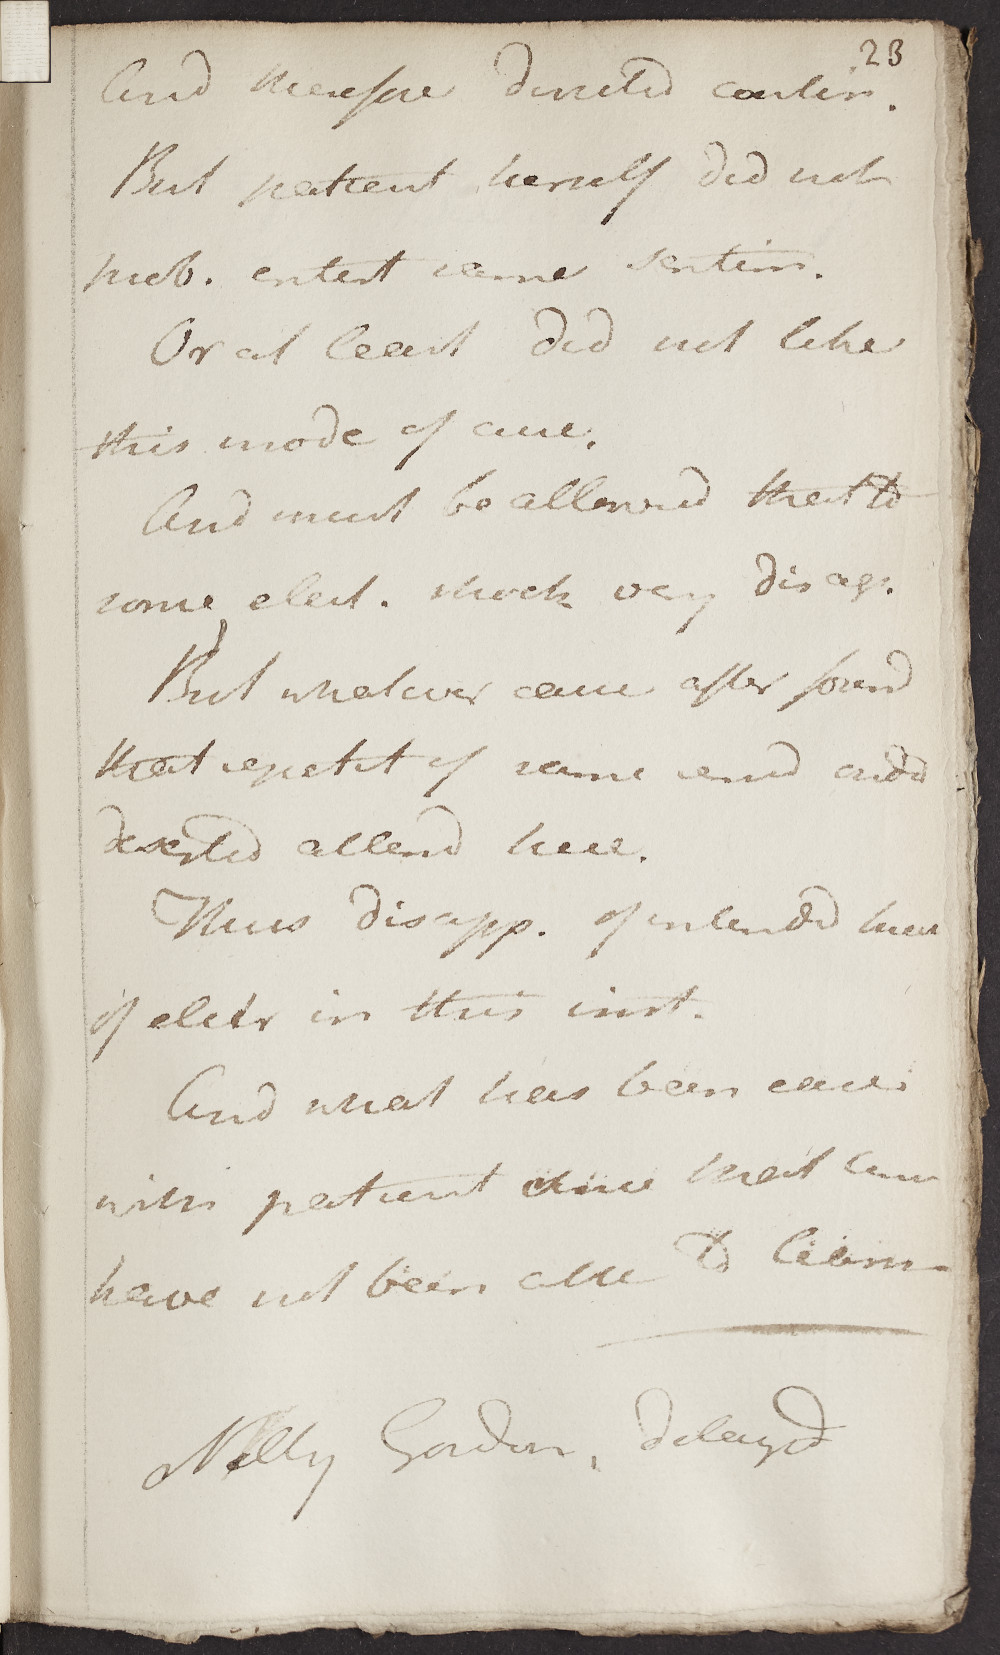 23
And therefore directed contin.
But patient herself did not
prob. entert same sentim.
Or at least did not like
this mode of cure.
And must be allowed that to
some elect. shock very disagr.
But whatever cause after found
that repetit of same remd
deserted attend here.
Thus disapp. of intended
of electr in this inst.
And what has been
with patient since that
have not been able to learn
Nelly Gordon, delayed